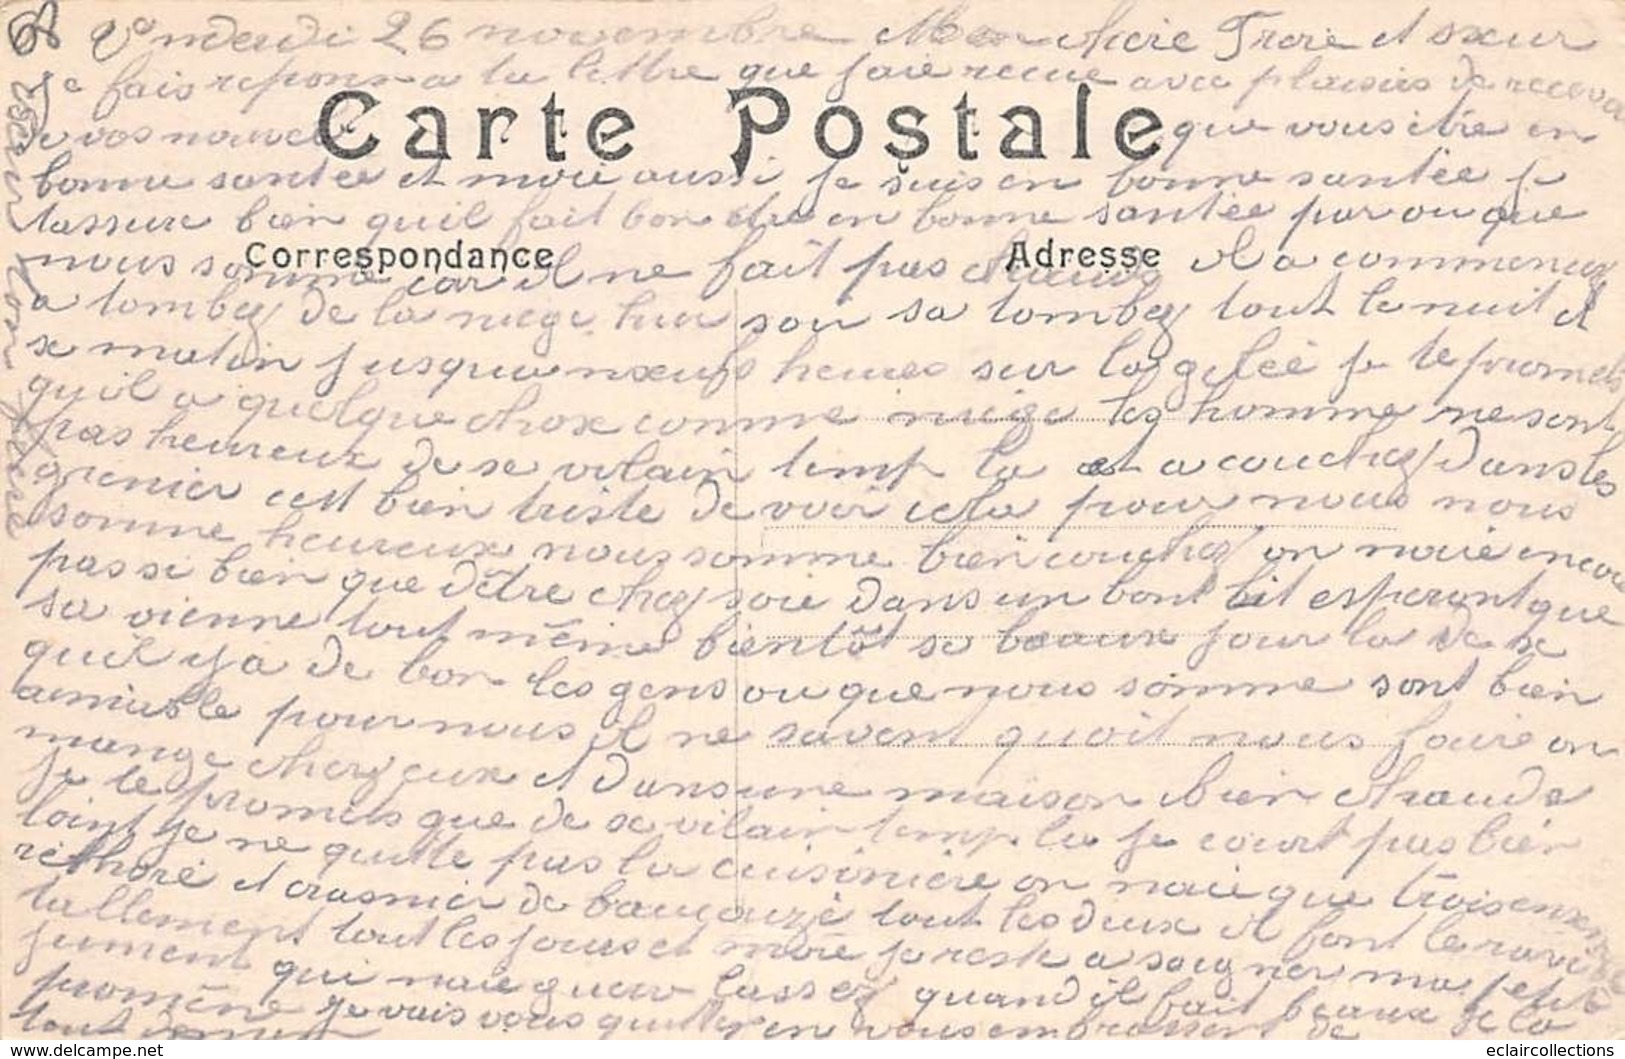 68 Vendredi 26 novembre Mon chere Frere et sœur
Je fais reponse a ta lettre que jaie recue avec plaisirs de recevoir
de vos nouvel
Carte Postale
que vous être en
bonne santée et moie aussi je suis en bonne santée je
tassure bien quil fait bon etre en bonne santée par ou que
nous somme car il ne fait pas chaud il a commencez
Correspondance
Adresse
a tombez de la niege hier soir sa tombez tout le nuit et
se matin jusqua nœufs heures sur la gelée je te promets
quil a quelque chose comme niége les homme ne sont
pas heureux de se vilain temp la et a couchez dans les
grenier cest bien triste de voir cela pour nous nous
somme heureux nous somme bien couchez on naie encore
pas si bien que d'être chez soie dans un bont lit esperont que
sa vienne tout même bientôt se beaux jour la de se
quil y a de bon les gens ou que nous somme sont bien
aimiable pour nous il ne savent quoit nous faire on
mange chez eux et dans une maison bien chaude
je te promets que de se vilain temp la je court pas bien
loint je ne quitte pas la cuisinière on naie que trois ensemble
réthoré et crasnier de baucouzé tout les deux il font le ravi
taillement tout les jours et moie je reste a soigner ma petite
jument qui naie guere lassez quand il fait beaux je la
promène je vais vous quitter en vous embrassent de
tout
ton frere